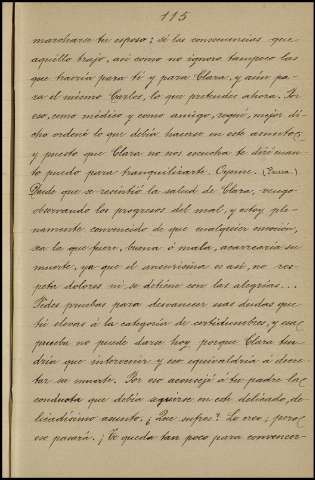 115
marcharse tu esposo; sé las consecuencias que
aquello trajo, así como no ignoro tampoco las
que traería para tí y para Clara, y aún pa-
ra el mismo Carlos, lo que pretendes ahora. Por
eso, como médico y como amigo, rogué, mejor di-
cho ordené lo que debía hacerse en este asunto
y puesto que Clara no nos escucha te diré cuan-
to puedo para tranquilizarte. Oyeme. (Pausa.)
Desde que se resintió la salud de Clara, vengo
observando los progresos del mal, y estoy ple-
namente convencido de que cualquier emoción,
sea la que fuere, buena ó mala, acarrearía su
muerte, ya que el aneurisma es así, no res-
peta dolores ni se detiene con las alegrías...
Pides pruebas para desvanecer unas dudas que
tú elevas á la categoría de certidumbres, y esa
prueba no puede darse hoy porque Clara ten-
dría que intervenir y eso equivaldría á decre-
tar su muerte. Por eso aconsejé á tu padre la
conducta que debía seguirse en este delicado, de-
licadísimo asunto. ¿Que sufres? Lo creo; pero
eso pasará. ¡Te queda tan poco para convencer-